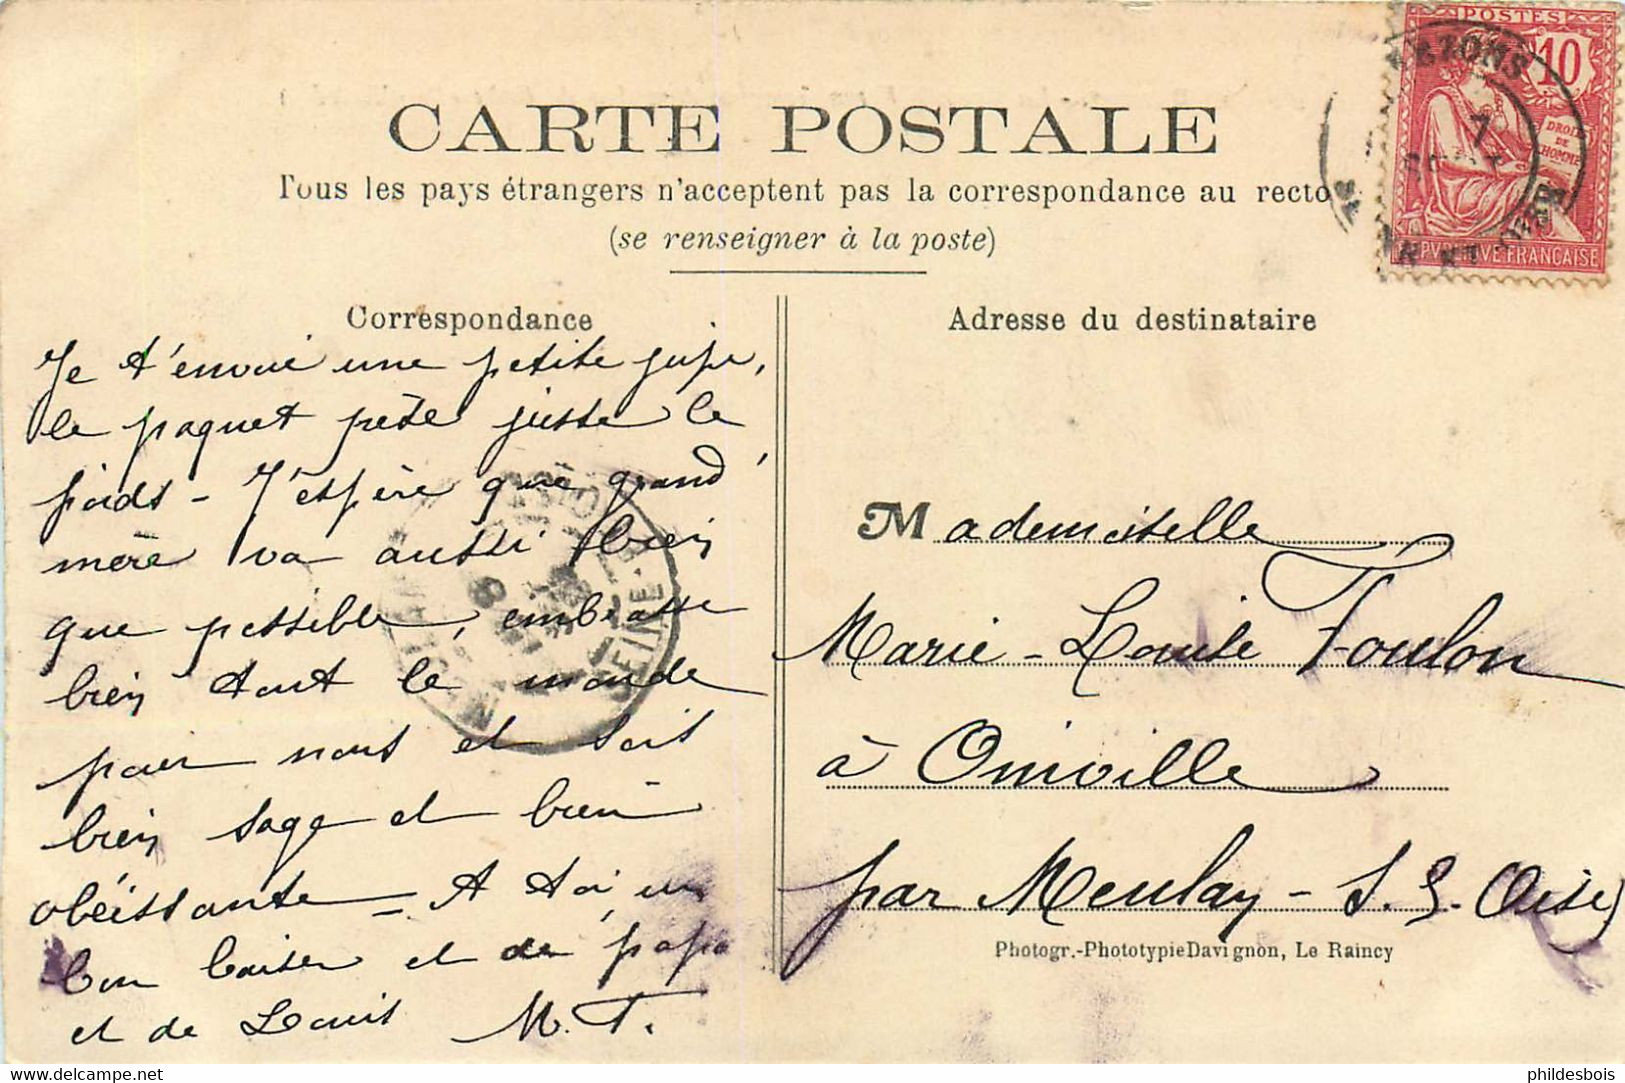 CARTE POSTALE
Tous les pays étrangers n'acceptent pas la correspondance au recto
(se renseigner à la poste)
POSTES
10
DROITS
DE
L'HOMME
7
REPVBLIQVE FRANÇAISE
Correspondance
Je t'envoie une petite jupe,
le paquet pèse juste le
poids - J'espère que grand'
mère va aussi bien
que possible, embrasse
bien tout le monde
pour nous et sois
bien sage et bien
obéissante - A toi un
bon baiser et de papa
et de Louis M. F.
8
SEINE
Adresse du destinataire
Mademoiselle
Marie-Louise Foulon
à Oinville
par Meulan - S. &. Oise)
Photogr.-Phototypie Davignon, Le Raincy
www.delcampe.net
phildesbois